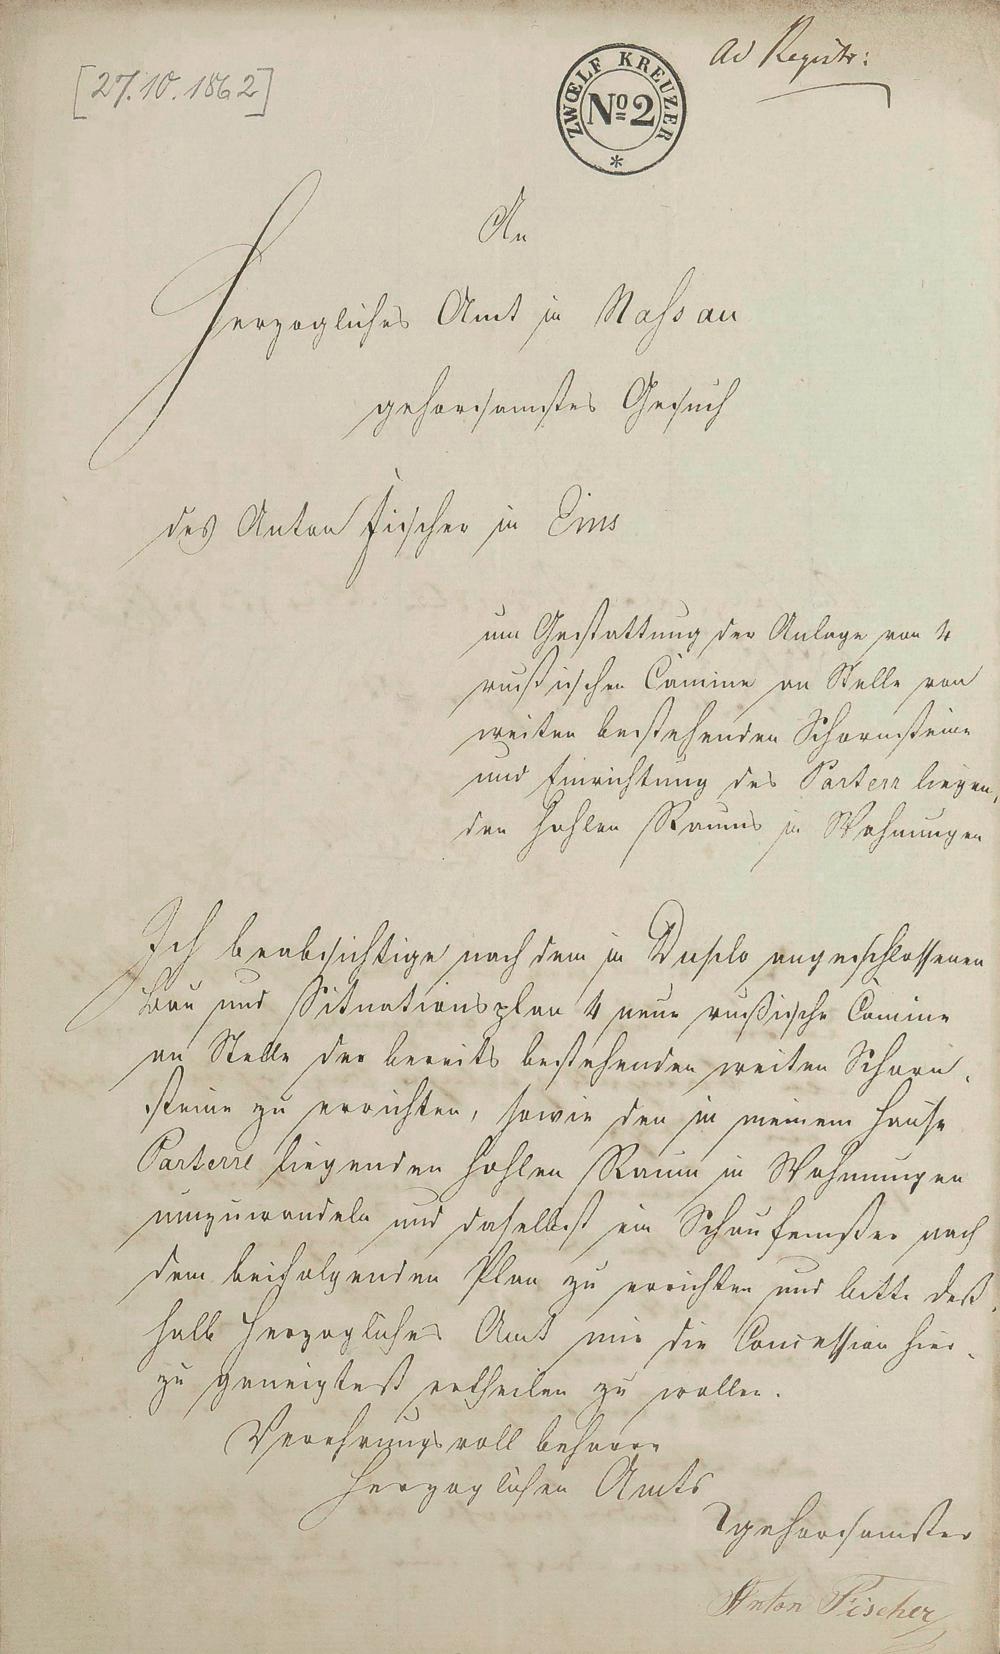 [27.10.1862]
ZWŒLF KREUZER
No 2
ad Registr:
An
Herzogliches Amt in Nassau
gehorsamstes Gesuch
des Anton Fischer in Ems
um Gestattung der Anlage von 4
russischen Camine an Stelle von
weiten bestehenden Schornsteine
und Einrichtung des Parterr liegen,
den hohlen Raums in Wohnungen
Ich beabsichtige nach dem in Duplo angeschlossenen
Bau und Situationsplan 4 neue russische Camine
an Stelle der bereits bestehenden weiten Schorn,
steine zu errichten, sowie den in meinem Hause
Parterre liegenden hohlen Raum in Wohnungen
umzuwandeln und daselbst ein Schaufenster nach
dem beifolgenden Plan zu errichten und bitte deß,
halb Herzogliches Amt mir die Concession hier,
zu geneigtest ertheilen zu wollen.
Verehrungsvoll beharre
Herzoglichen Amts
gehorsamster
Anton Fischer